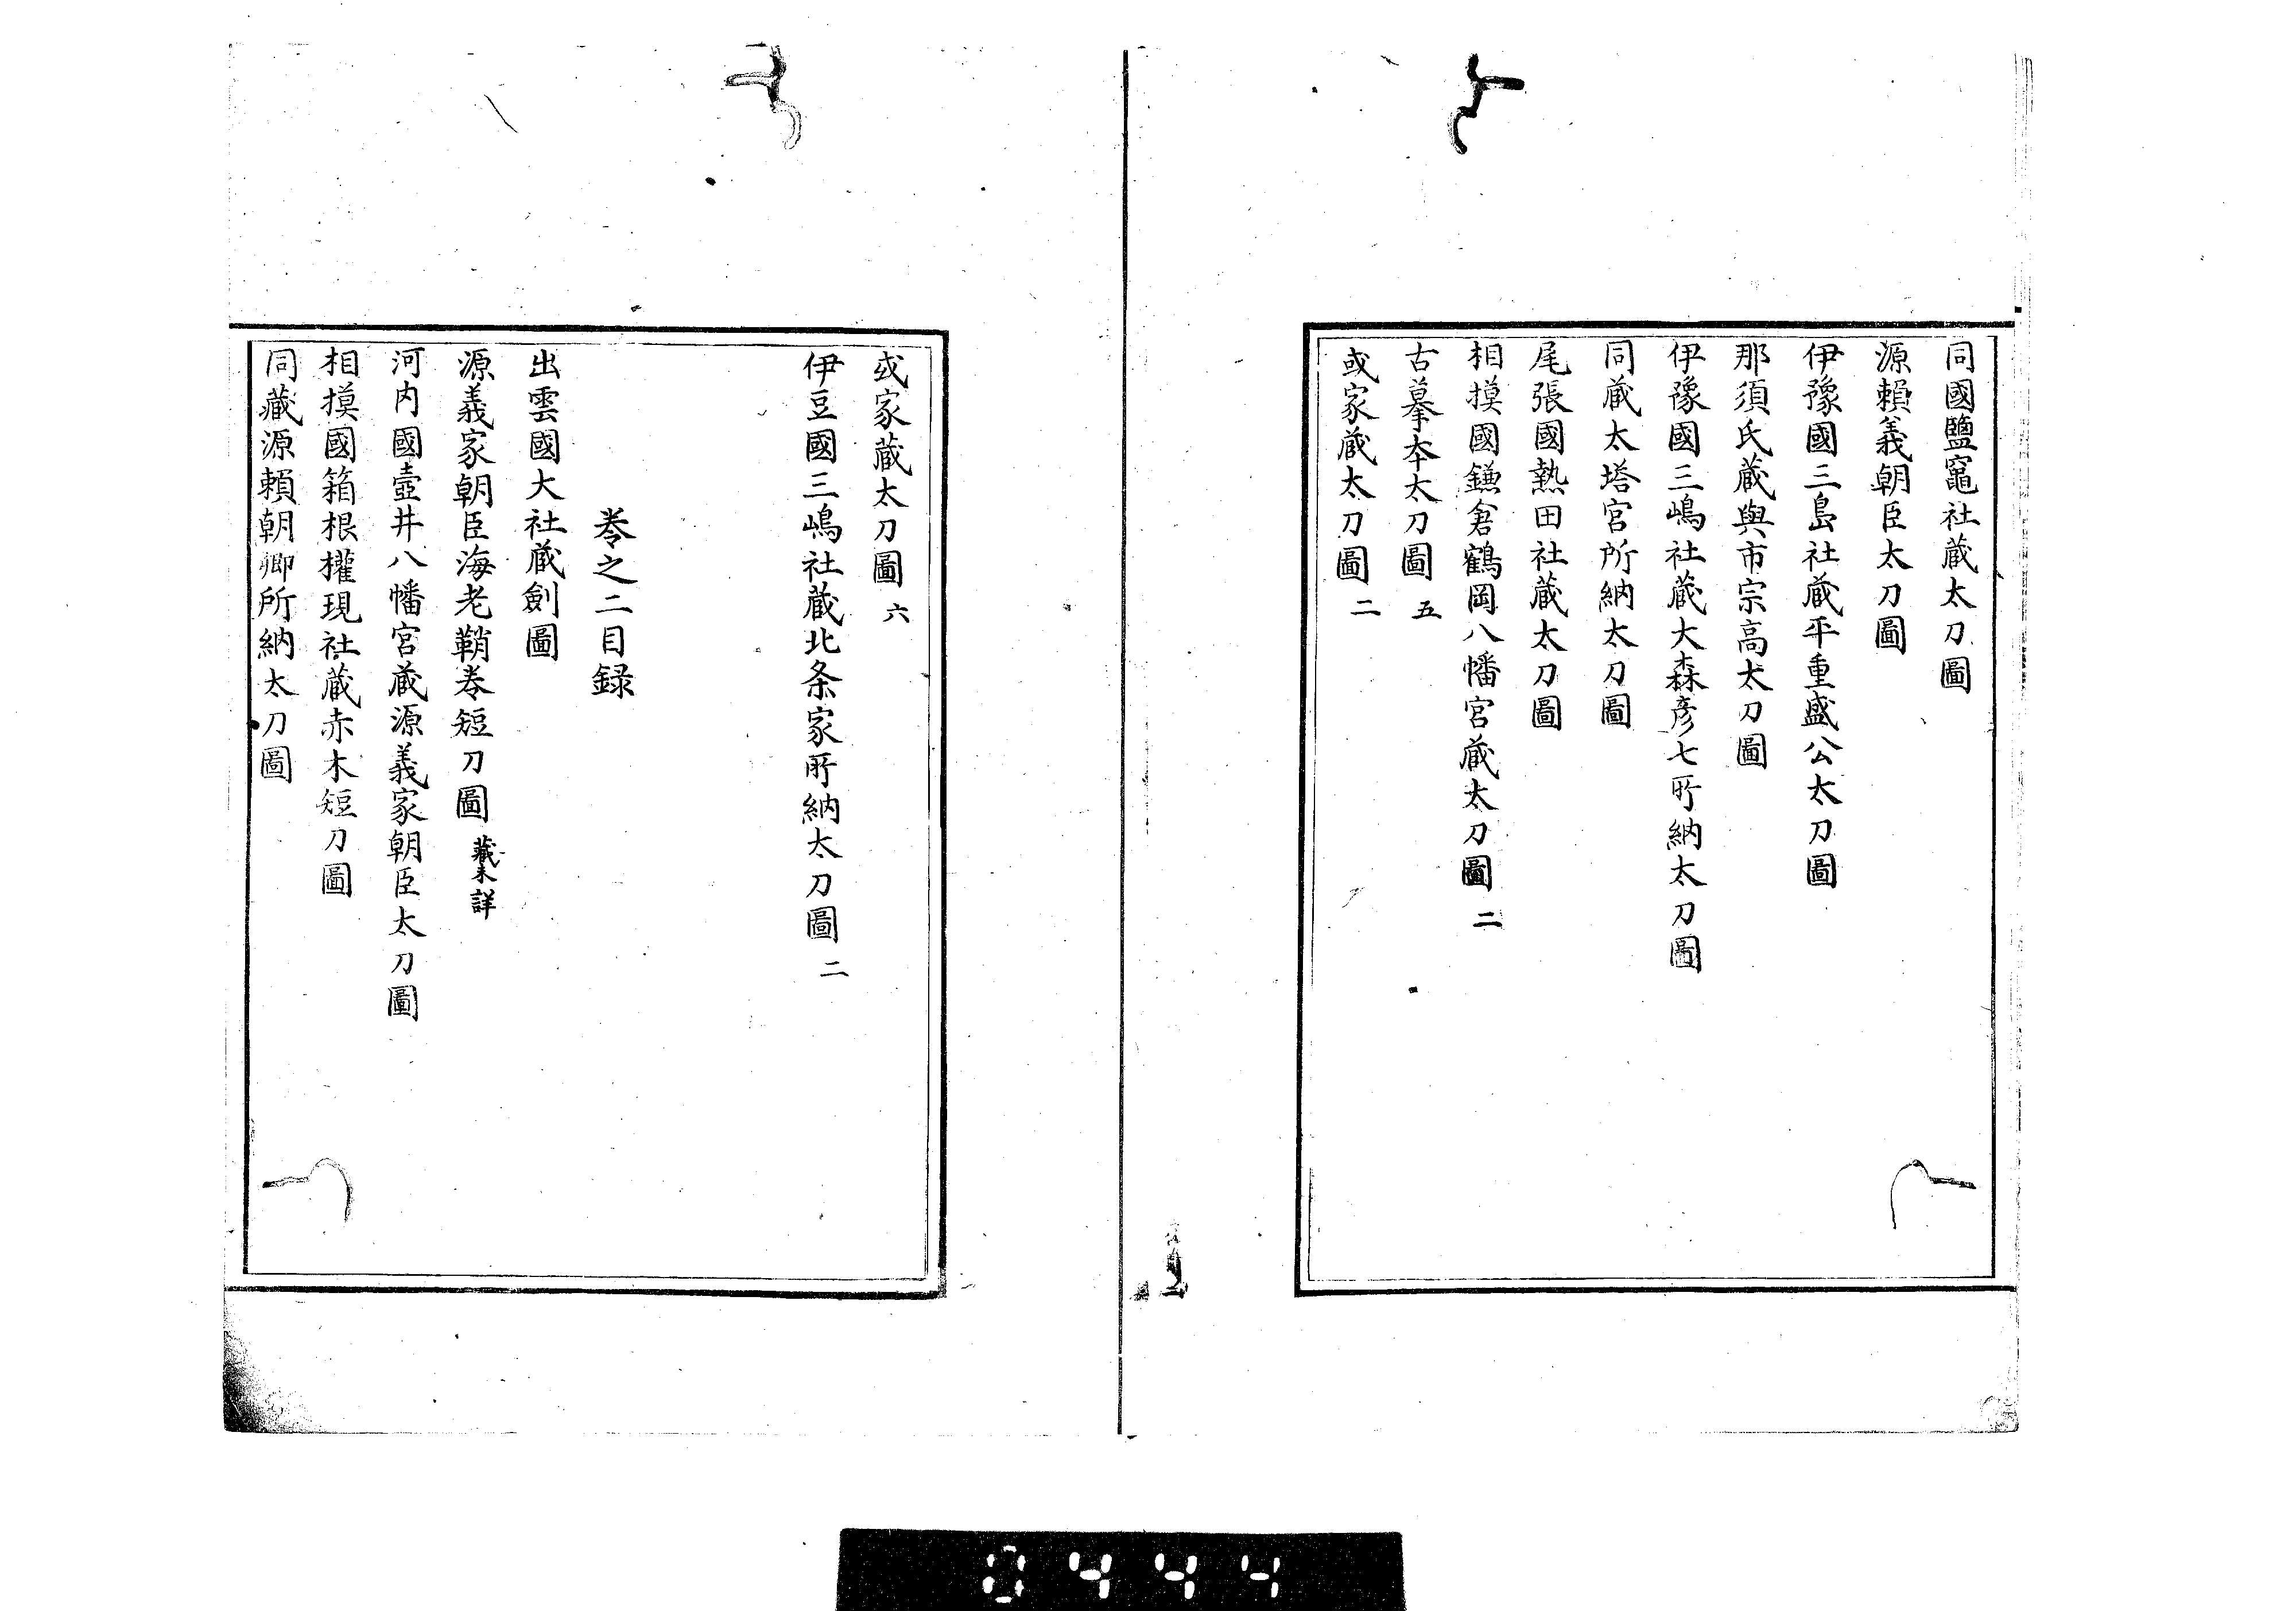 同國鹽竈社蔵太刀圖
源賴義朝臣太刀圖
伊豫國三島社蔵平重盛公太刀圖
那須氏蔵與市宗高太刀圖
伊豫國三嶋社蔵大森彦七所納太刀圖
同蔵大塔宮所納太刀圖
尾張國熱田社蔵太刀圖
相摸國鎌倉鶴岡八幡宮蔵太刀圖 二
古摹本太刀圖 五
或家蔵太刀圖 二
或家蔵太刀圖 六
伊豆國三嶋社蔵北条家所納太刀圖 二
巻之二目録
出雲國大社蔵劍圖
源義家朝臣海老鞘巻短刀圖 藏未詳
河内國壺井八幡宮蔵源義家朝臣太刀圖
相摸國箱根權現社蔵赤木短刀圖
同藏源賴朝卿所納太刀圖
0444